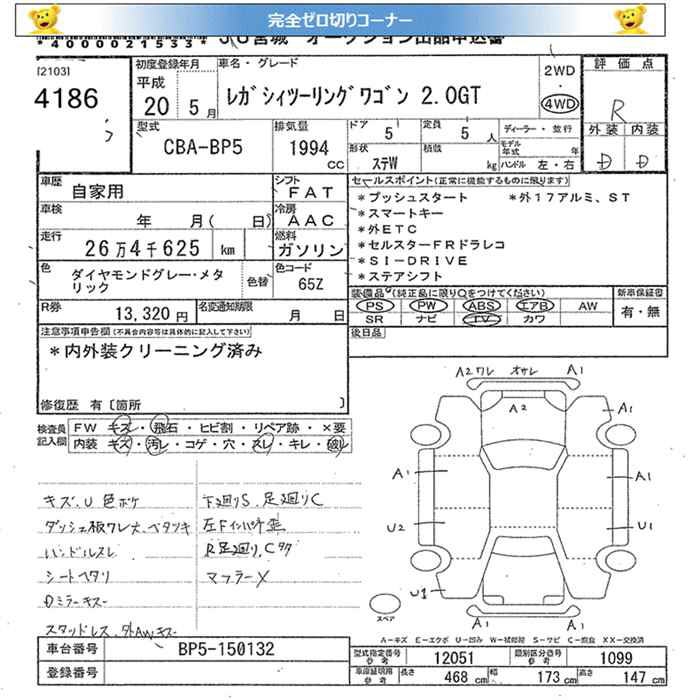 完全ゼロ切りコーナー
*4000021533* JU宮城 オークション出品申込書
[2103]
4186
初度登録年月
平成
20 5月
車名・グレード
レガシィツーリングワゴン 2.0GT
2WD
・
4WD
評価点
R
外装 内装
D D
型式
CBA-BP5
排気量
1994
CC
ドア
5
定員
5 人
形状
ステW
積載
kg
ディーラー・並行
モデル年式 年
ハンドル 左・右
車歴
自家用
シフト
FAT
車検
年 月( 日)
冷房
AAC
走行
26万4千625 km
燃料
ガソリン
色
ダイヤモンドグレー・メタリック
色替
色コード
65Z
R券
13,320円
名変通知期限
月 日
セールスポイント(正常に機能するものに限ります)
*プッシュスタート *外17アルミ、ST
*スマートキー
*外ETC
*セルスターFRドラレコ
*SI-DRIVE
*ステアシフト
装備品(純正品に限り○をつけてください)
新車保証書
PS PW ABS エアB AW
有・無
SR ナビ TV カワ
後日品
注意事項申告欄(不具合内容等は具体的に記入して下さい)
*内外装クリーニング済み
修復歴 有〔箇所 〕
検査員記入欄
FW キズ・飛石・ヒビ割・リペア跡・×要
内装 キズ・汚レ・コゲ・穴・スレ・キレ・破レ
キズ、U 色ボケ
ダッシュ板ワレ大、ベタツキ
ハンドルスレ
シートヘタリ
Dミラーキズ
スタッドレス、外AWキズ
下廻りS、足廻りC
左Fインパネ歪
R足廻り、Cタク
マフラーX
A2ワレ オサレ A1
A2
A1
A1
A1
U2
U1
U1
A1
A1
スペア
A-キズ E-エクボ U-凹み W-補修跡 S-サビ C-腐食 XX-交換済
車台番号
BP5-150132
登録番号
型式指定番号
参考
12051
類別区分番号
参考
1099
車庫証明用
参考
長さ
468 cm
幅
173 cm
高さ
147 cm